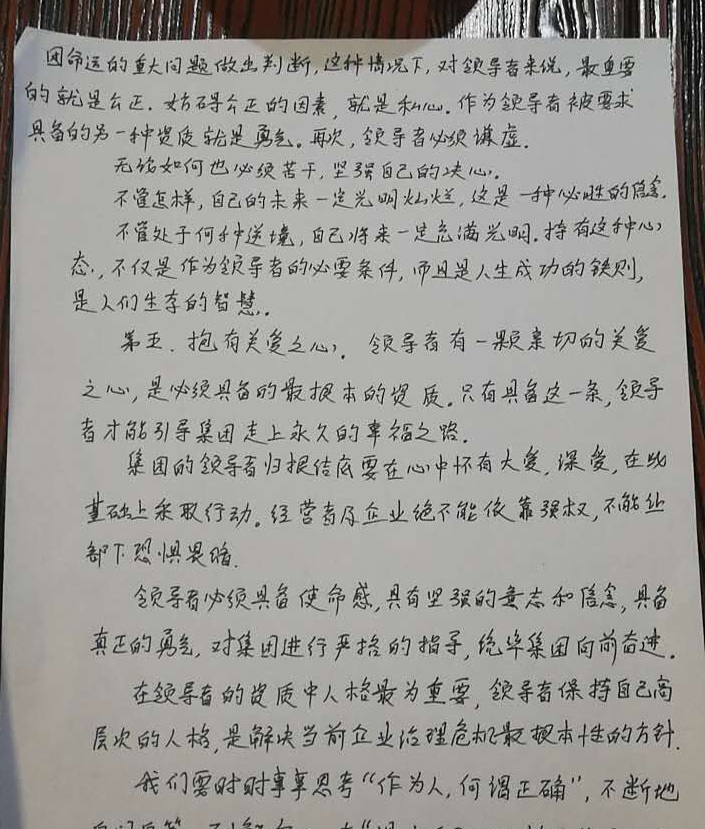 团命运的重大问题做出判断,这种情况下,对领导者来说,最重要
的就是公正.妨碍公正的因素,就是私心.作为领导者被要求
具备的另一种资质就是勇气。再次,领导者必须谦虚.
无论如何也必须苦干,坚强自己的决心.
不管怎样,自己的未来一定光明灿烂,这是一种必胜的信念.
不管处于何种逆境,自己将来一定充满光明.持有这种心
态,不仅是作为领导者的必要条件,而且是人生成功的铁则,
是人们生存的智慧.
第五.抱有关爱之心.领导者有一颗亲切的关爱
之心,是必须具备的最根本的资质.只有具备这一条,领导
者才能引导集团走上永久的幸福之路.
集团的领导者归根结底要在心中怀有大爱,深爱,在此
基础上采取行动。经营者及企业绝不能依靠强权,不能让
部下恐惧畏缩.
领导者必须具备使命感,具有坚强的意志和信念,具备
真正的勇气,对集团进行严格的指导,统率集团向前奋进.
在领导者的资质中人格最为重要,领导者保持自己高
层次的人格,是解决当前企业治理危机最根本性的方针.
我们要时时事事思考“作为人,何谓正确”,不断地